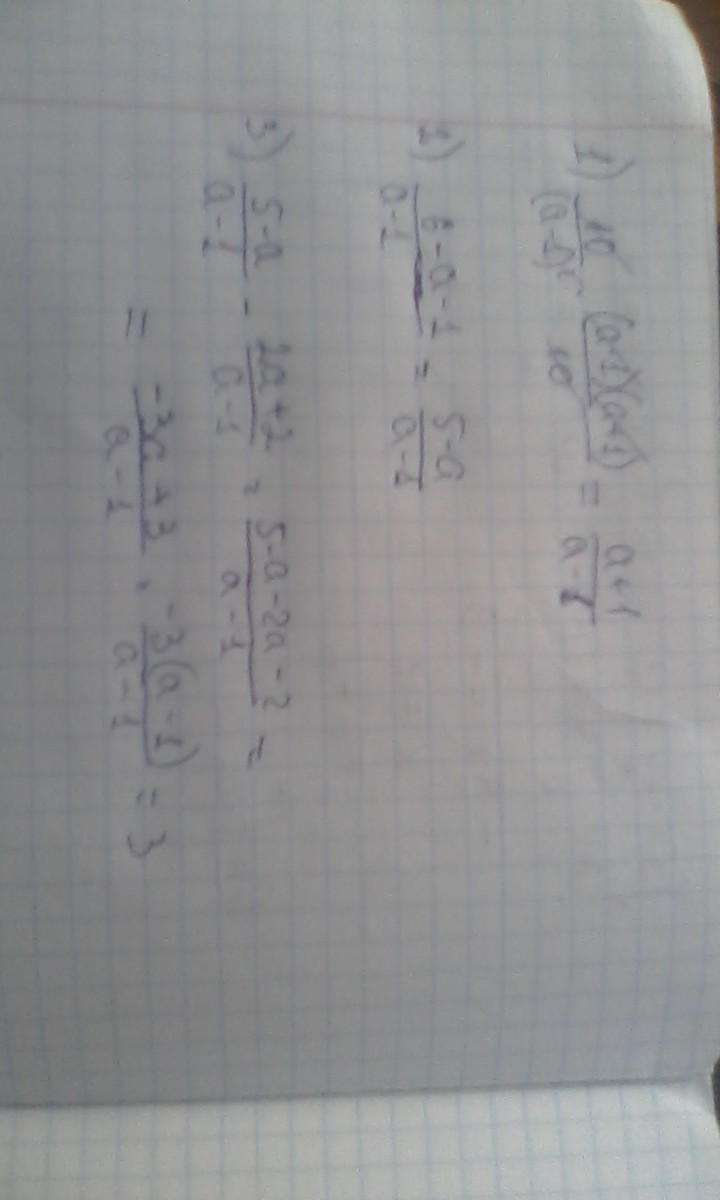 1) 10/(a-1)² · (a-1)(a+1)/10 = a+1/a-1
2) 6-a-1/a-1 = 5-a/a-1
3) 5-a/a-1 - 2a+2/a-1 = 5-a-2a-2/a-1 =
= -3a+3/a-1 = -3(a-1)/a-1 = 3